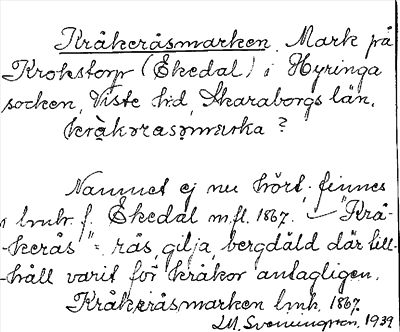 Kråkeråsmarken, Mark på
Krokstorp (Ekedal) i Hyringa
socken, Viste hd, Skaraborgs län.
kråkoråsmarka ?
Namnet ej nu hört, finnes
i lmhr. f. Ekedal m.fl. 1867. "Krå-
-kerås" = rås, gilja, bergdäld där till-
-håll varit för kråkor antagligen.
Kråkeråsmarken lmh. 1867.
LM. Svenungson. 1939